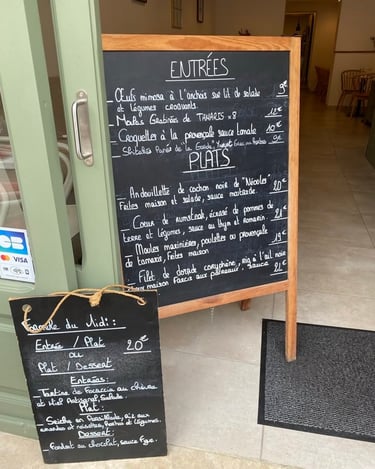 ENTRÉES
Œufs mimosa à l'anchois sur lit de salade 9€
et légumes croquants.
Moules Gratinées de TAMARIS x 8 12€
Croquettes à la provençale sauce tomate 10€
PLATS
Andouillette de cochon noir de "Nicoles" 20€
frites maison et salade, sauce moutarde.
Coeur de rumsteak, écrasé de pommes de 21€
terre et légumes, sauce au thym et romarin.
Moules marinières, poulettes ou provençale 19€
de tamaris, frites maison
Filet de dorade coryphène, riz à l'ail noir 21€
maison sauce
VISA
Formule du Midi :
Entrée / Plat 20€
ou
Plat / Dessert
Entrées:
Tartine de focaccia au chèvre
et miel Artisanal, salade.
Plat:
Seiche en Persillade, ail aux
amandes et noisettes, et légumes.
Dessert:
Fondant au chocolat, sauce